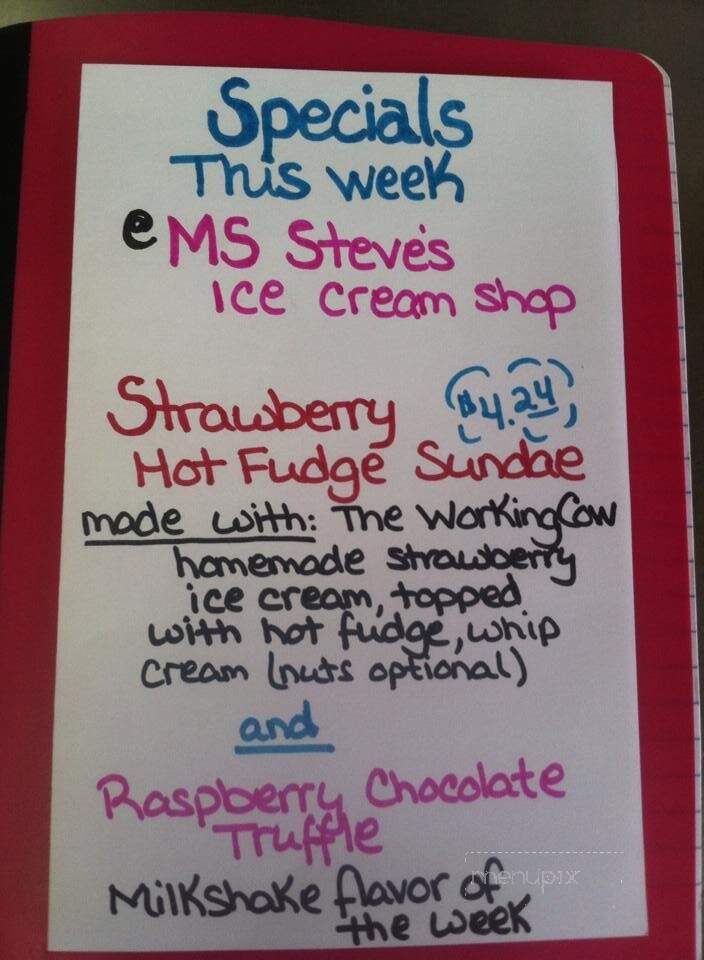 Specials
This week
@ MS Steve's
Ice cream shop
Strawberry $4.24
Hot Fudge Sundae
made with: The WorkingCow
homemade strawberry
ice cream, topped
with hot fudge, whip
cream (nuts optional)
and
Raspberry Chocolate
Truffle
Milkshake flavor of
the week
menupix